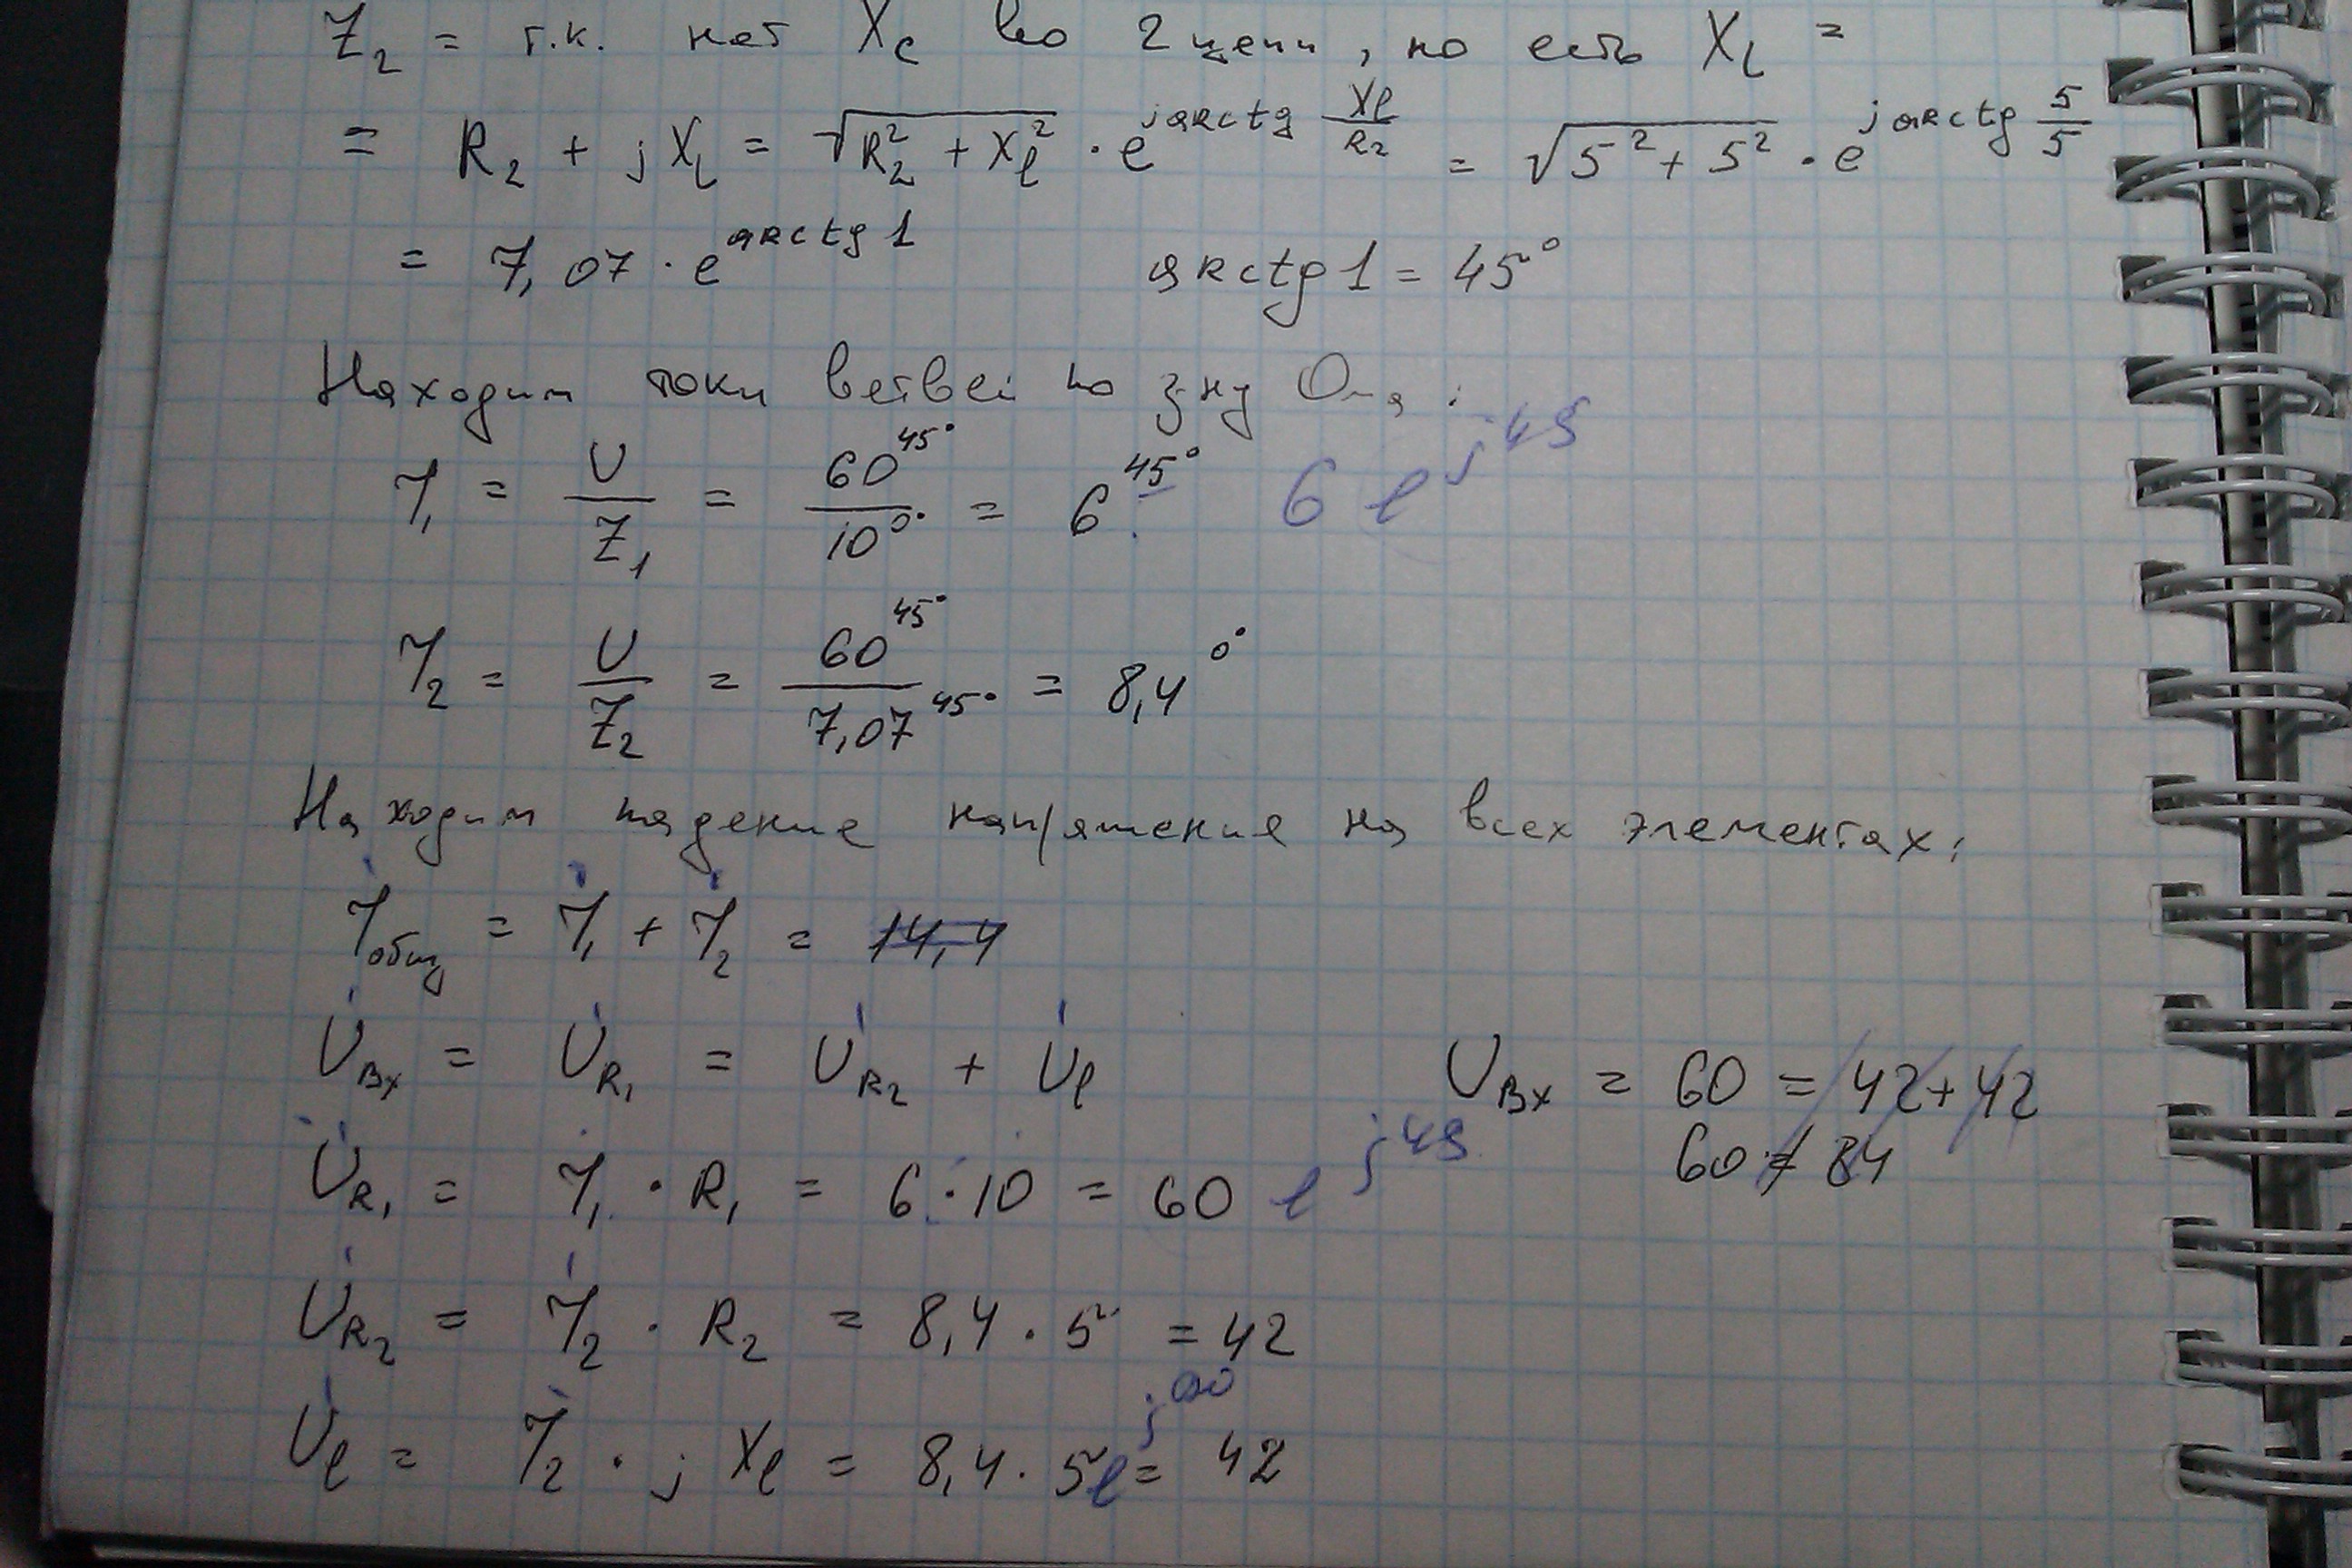 Z₂ = т.к. нет Xc во 2 цепи, но есть X_L =
= R₂ + jX_L = √(R₂² + X_l²) · e^(j arctg X_l/R₂) = √(5² + 5²) · e^(j arctg 5/5)
= 7,07 · e^(arctg 1) arctg 1 = 45°
Находим токи ветвей по з-ну Ома:
I₁ = U/Z₁ = 60^(45°)/10^(0°) = 6^(45°) 6 e^(j45)
I₂ = U/Z₂ = 60^(45°)/7,07^(45°) = 8,4^(0°)
Находим падение напряжение на всех элементах:
İобщ = İ₁ + İ₂ = 14,4
U̇вх = U̇_R₁ = U̇_R₂ + U̇_l Uвх = 60 = 42 + 42
60 ≠ 84
U̇_R₁ = I₁ · R₁ = 6 · 10 = 60 e^(j45)
U̇_R₂ = İ₂ · R₂ = 8,4 · 5 = 42
U̇_l = İ₂ · j X_l = 8,4 · 5e^(j90) = 42